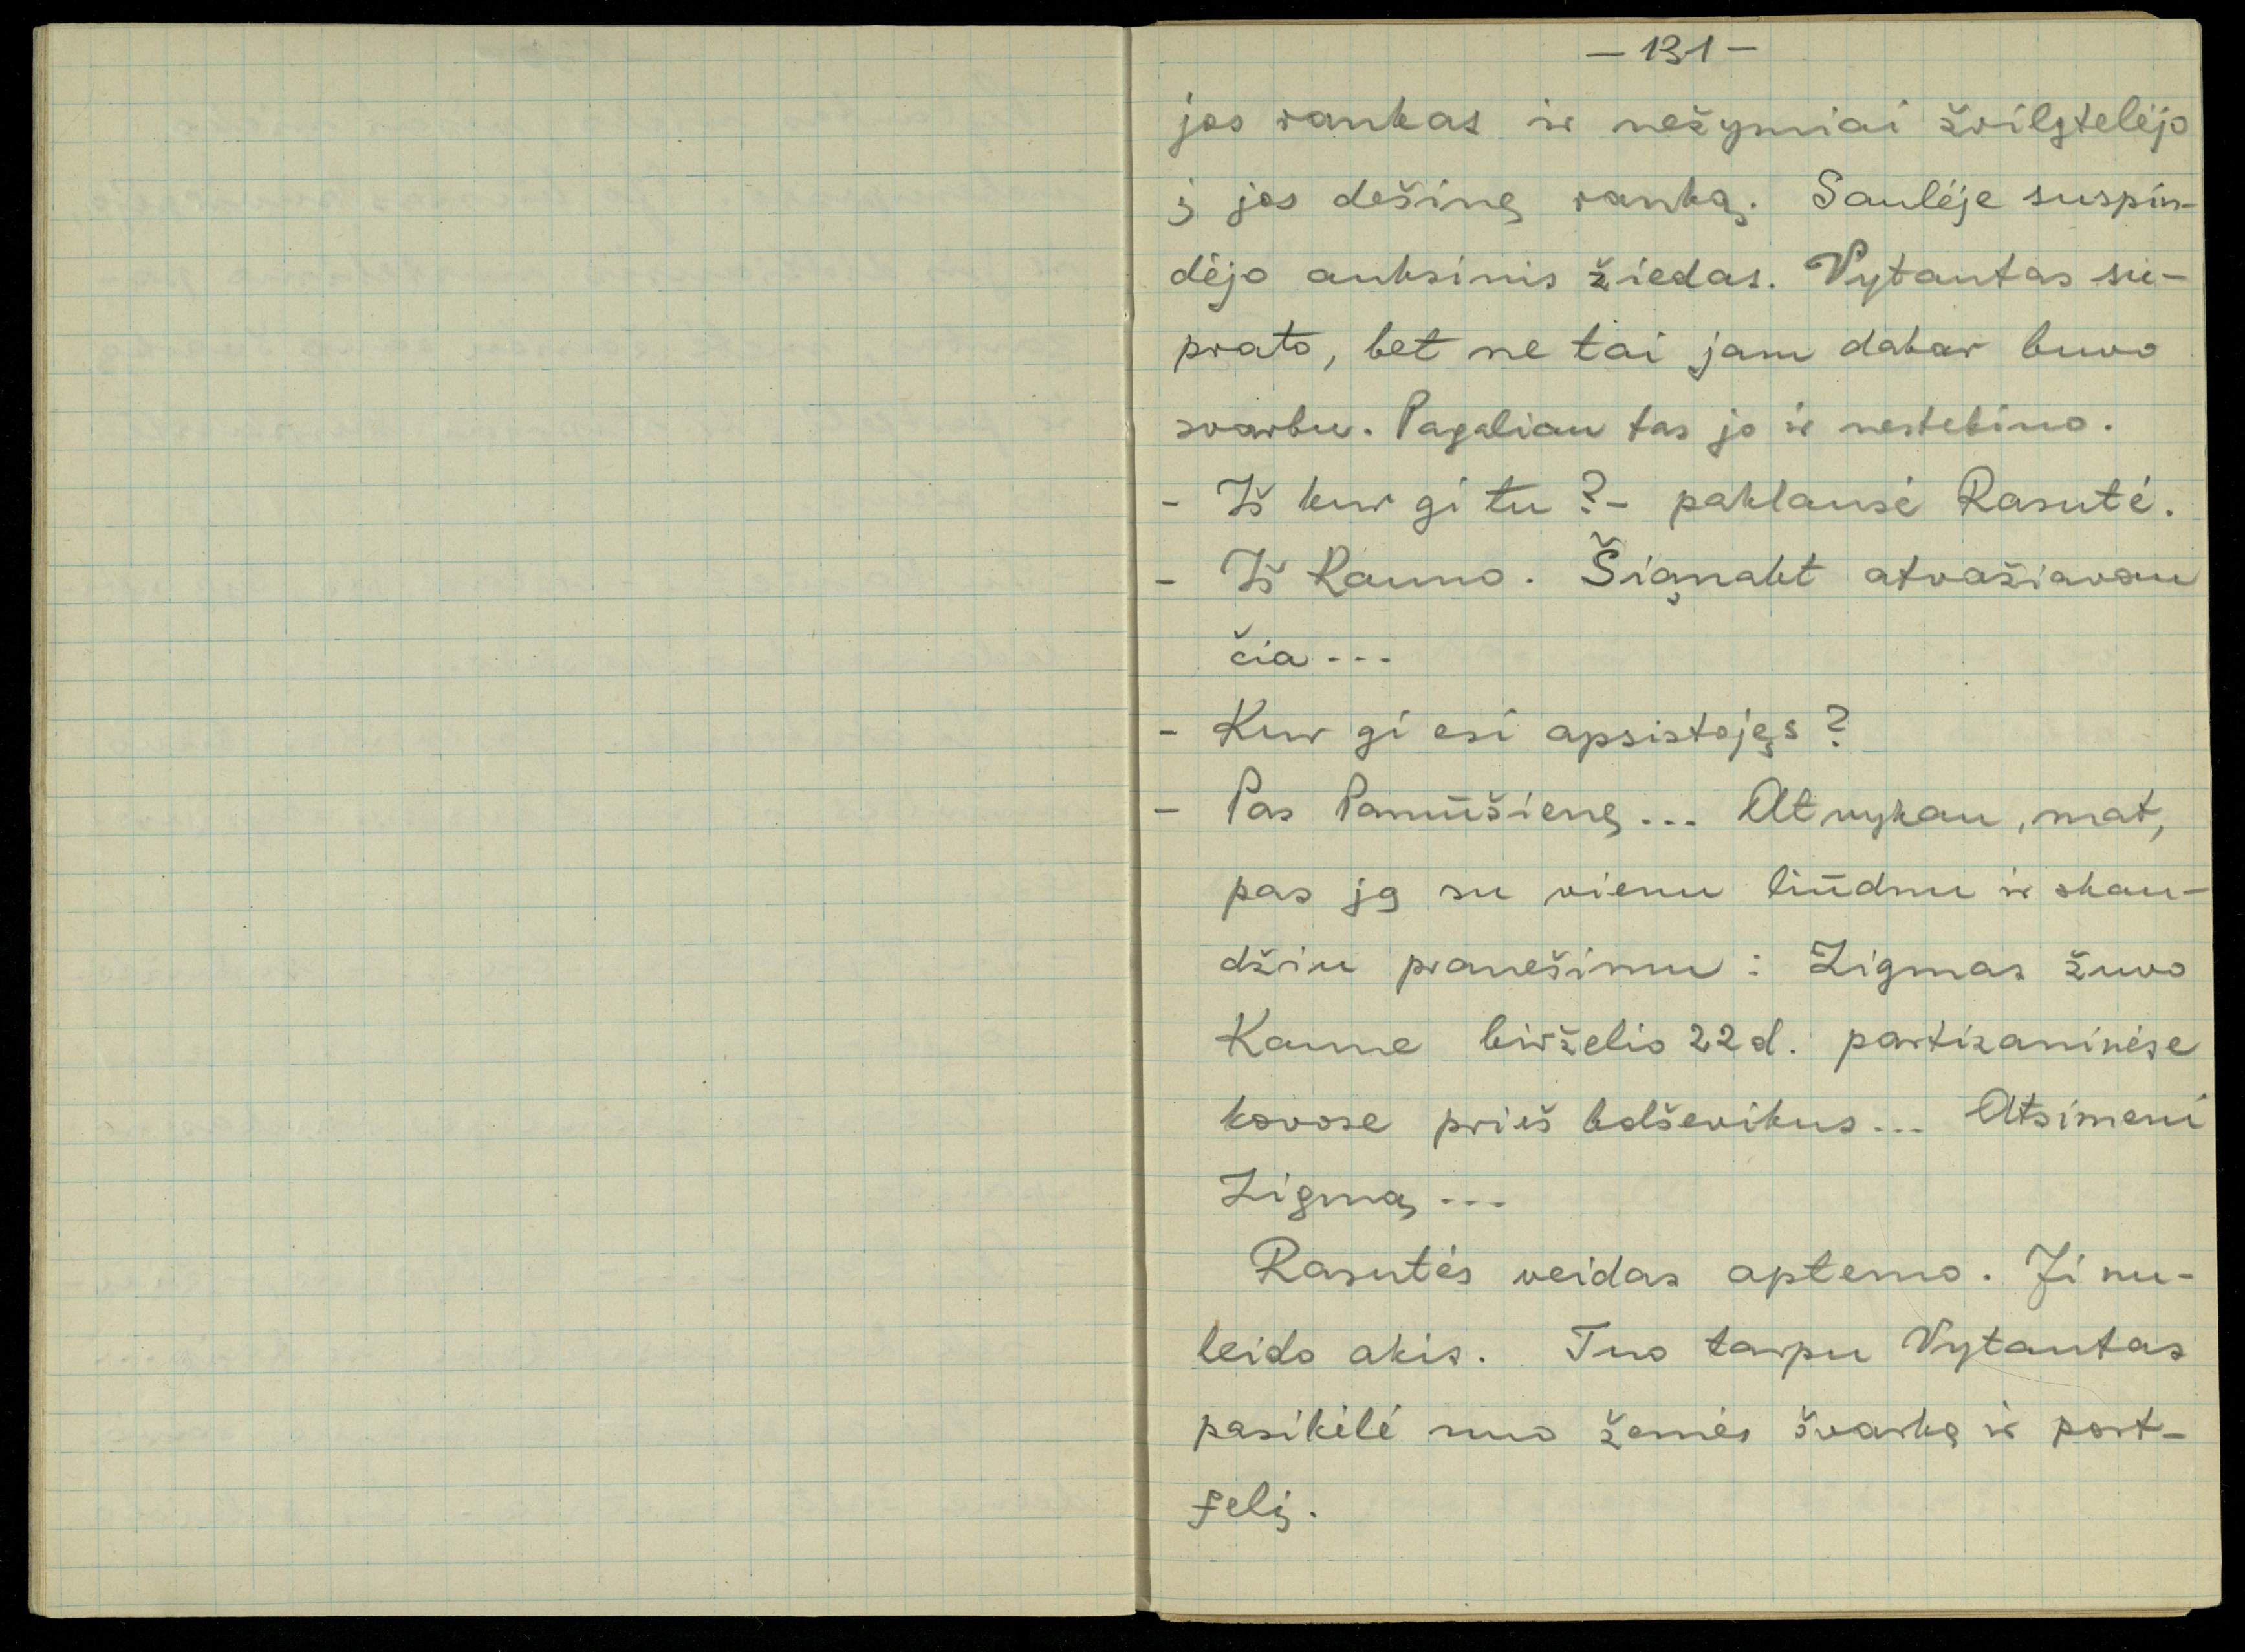 — 131 —
jos rankas ir nežymiai žvilgtelėjo
į jos dešinę ranką. Saulėje suspin-
dėjo auksinis žiedas. Vytautas su-
prato, bet ne tai jam dabar buvo
svarbu. Pagaliau tas jo ir nestebino.
- Iš kur gi tu? - paklausė Rasutė.
- Iš Kauno. Šiąnakt atvažiavau
čia...
- Kur gi esi apsistojęs?
- Pas Panūšienę... Atvykau, mat,
pas ją su vienu liūdnu ir skau-
džiu pranešimu: Zigmas žuvo
Kaune birželio 22 d. partizaninėse
kovose prieš bolševikus... Atsimeni
Zigmą...
Rasutės veidas aptemo. Ji nu-
leido akis. Tuo tarpu Vytautas
pasikėlė nuo žemės švarką ir port-
felį.